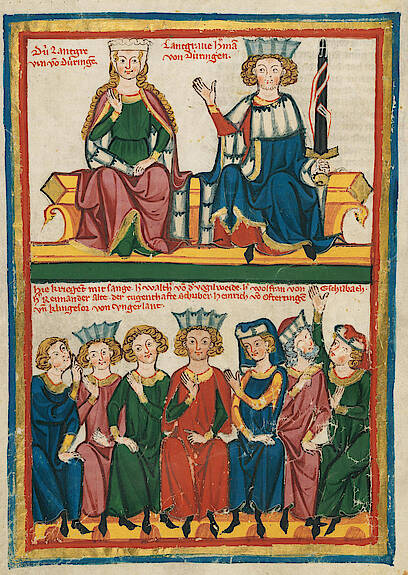 Dú Lantgrevin võ Düringẽ.
Lantgrave Hͤmã
von Düringen.
Hie krieget mit sange. h̾ walth̾ võ d̾ vogilweide. h̾ wolfran von Eschilbach.
h̾ Reinander Alte. der tugenthafte schriber. Heinrich võ Ofteringen
vñ klingesor von vngerlant.